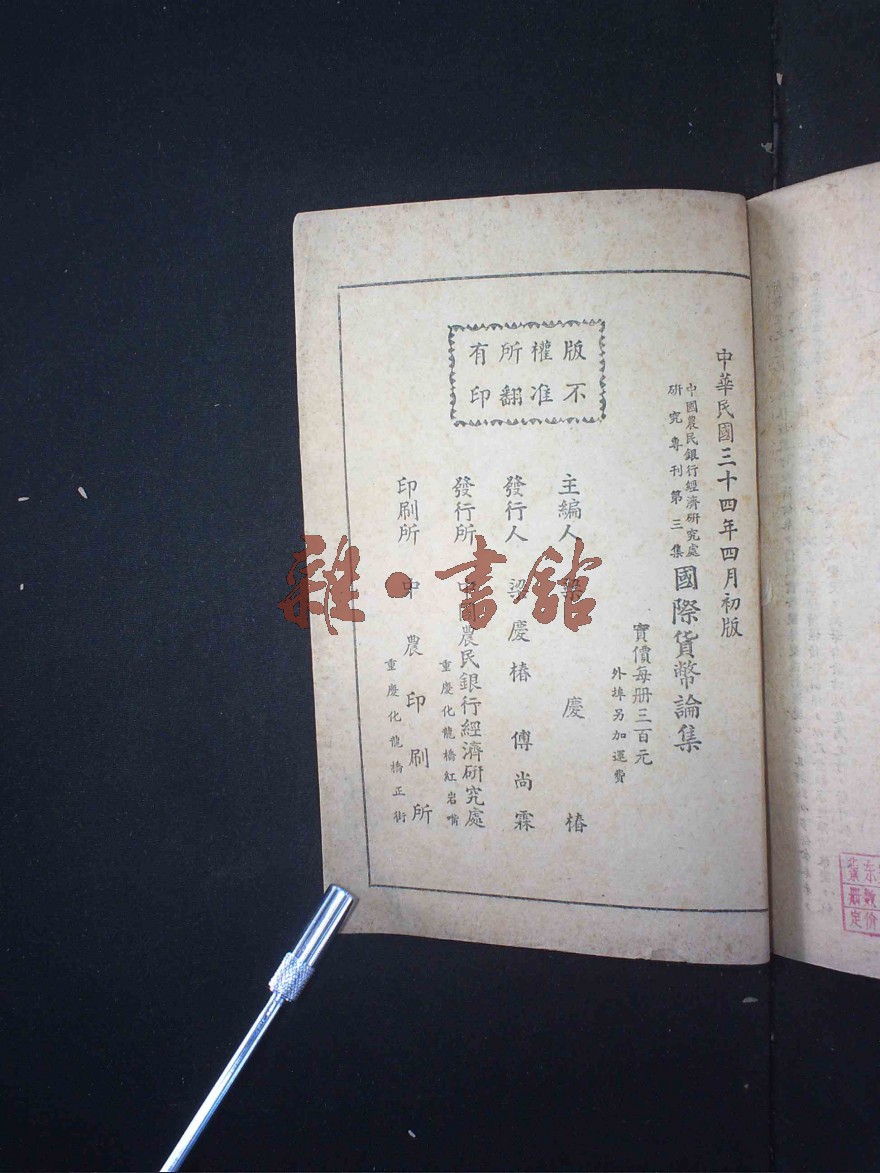 中華民國三十四年四月初版
中國農民銀行經濟研究處
研究專刊第三集
國際貨幣論集
實價每册三百元
外埠另加運費
版權所有
不准翻印
主編人 梁慶椿
發行人 梁慶椿 傅尚霖
發行所 中國農民銀行經濟研究處
重慶化龍橋紅岩嘴
印刷所 中農印刷所
重慶化龍橋正街
雜·書館